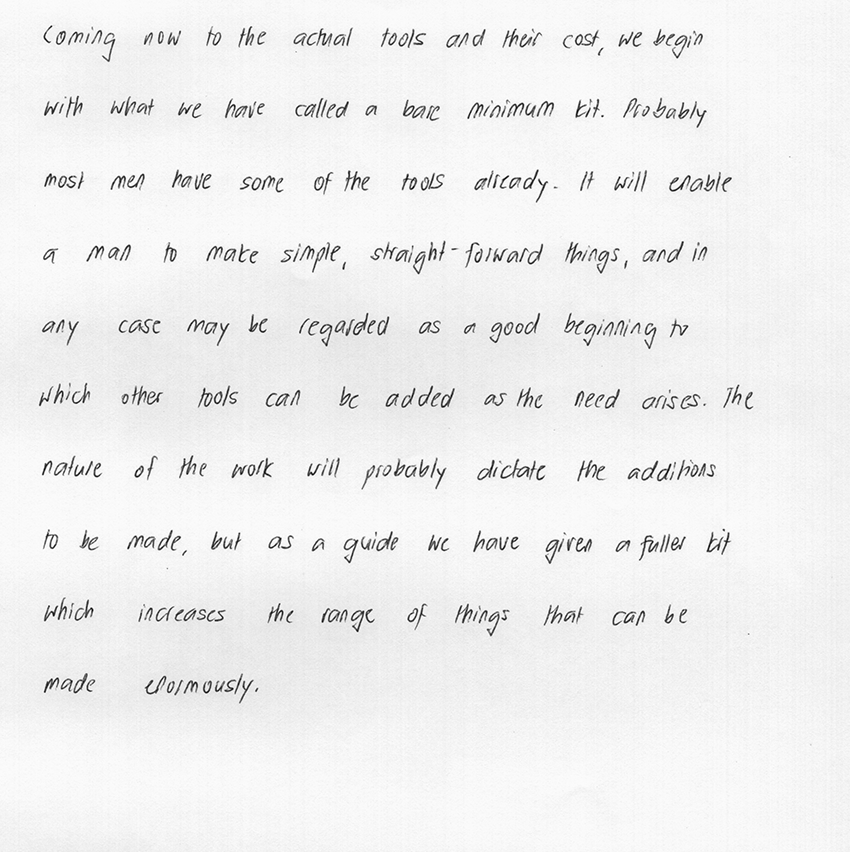 Coming now to the actual tools and their cost, we begin
with what we have called a bare minimum kit. Probably
most men have some of the tools already. It will enable
a man to make simple, straight-forward things, and in
any case may be regarded as a good beginning to
which other tools can be added as the need arises. The
nature of the work will probably dictate the additions
to be made, but as a guide we have given a fuller kit
which increases the range of things that can be
made enormously.